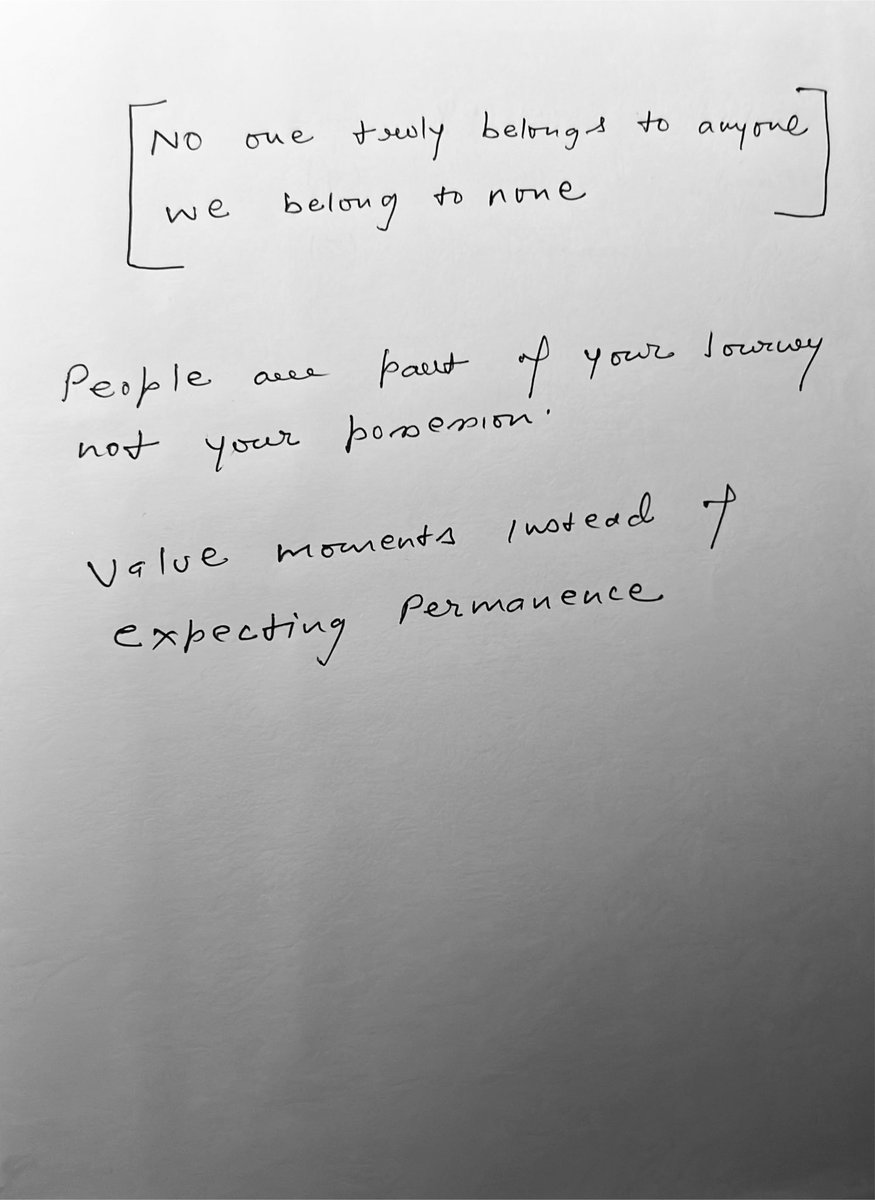 [No one truly belongs to anyone
we belong to none]
People are part of your journey
not your possession.
Value moments instead of
expecting Permanence